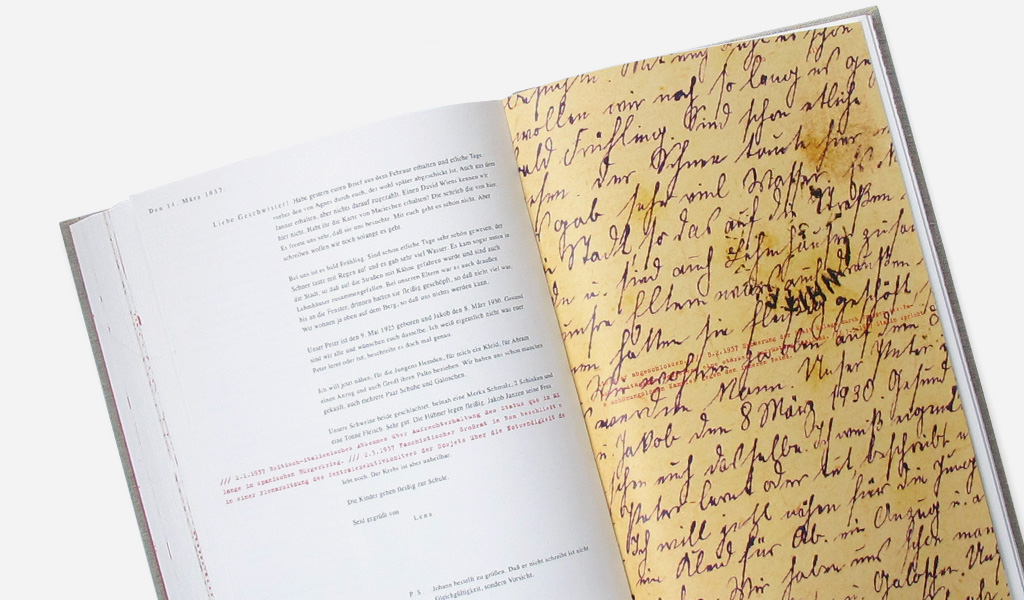 Den 31. März 1937.
Liebe Geschwister! Habe gestern euren Brief aus dem Februar erhalten und etliche Tage
vorher den von Agnes durch euch, der wohl später abgeschickt ist. Auch aus dem
Januar erhalten, aber nichts darauf zugezahlt. Einen David Wiens kennen wir
hier nicht. Habt ihr die Karte von Mariechen erhalten? Die schrieb die von hier.
Es freute uns sehr, daß sie uns besuchte. Mit euch geht es schon nicht. Aber
schreiben wollen wir noch solange es geht.
Bei uns ist es bald Frühling. Sind schon etliche Tage sehr schön gewesen, der
Schnee taute mit Regen auf und es gab sehr viel Wasser. Es kam sogar unten in
die Stadt, so daß auf die Straßen mit Kähne gefahren wurde und sind auch
Lehmhäuser zusammengefallen. Bei unseren Eltern war es auch draußen
bis an die Fenster, drinnen hatten sie fleißig geschöpft, so daß nicht viel war.
Wir wohnen ja oben auf dem Berg, so daß uns nichts werden kann.
Unser Peter ist den 9. Mai 1925 geboren und Jakob den 8. März 1930. Gesund
sind wir alle und wünschen euch dasselbe. Ich weiß eigentlich nicht was euer
Peter lernt oder tut, beschreibt es doch mal genau.
Ich will jetzt nähen, für die Jungens Hemden, für mich ein Kleid, für Abram
einen Anzug und auch Großi ihren Palto beziehen. Wir haben uns schon manches
gekauft, auch mehrere Paar Schuhe und Galoschen.
Unsere Schweine beide geschlachtet, beinah eine Merka Schmalz, 2 Schinken und
eine Tonne Fleisch. Sehr gut. Die Hühner legen fleißig. Jakob Janzen seine Frau
/// 2.1.1937 Britisch-italienisches Abkommen über Aufrechterhaltung des Status quo im Mi
lange im spanischen Bürgerkrieg. /// 2.3.1937 Faschistischer Großrat in Rom beschließt
in einer Plenarsitzung des Zentralexekutivkomitees der Sowjets über die Notwendigkeit de
lebt noch. Der Krebs ist aber unheilbar.
Die Kinder gehen fleißig zur Schule.
Seid gegrüßt von
Lena
P.S. Johann bestellt zu grüßen. Daß er nicht schreibt ist nicht
Gleichgültigkeit, sondern Vorsicht.
wollen wir noch so lang es ge
bald Frühling. Sind schon etliche
der Schnee taute hier
gab sehr viel Wasser.
Stadt, so das auf die Straßen
u. sind auch Lehmhäuser zusam
unsre Eltern war draußen
hatten sie fleißig geschöpft
Wir wohnen ja oben auf dem
werden kann. Unser Peter
u. Jakob den 8 März 1930. Gesund
euch dasselbe. Ich weiß eigentl
Peter lernt oder tut beschreibt
Ich will jetzt nähen für die Jung
ein Kleid für Ab. ein Anzug u. a
Wir haben uns schon man
Galoschen.